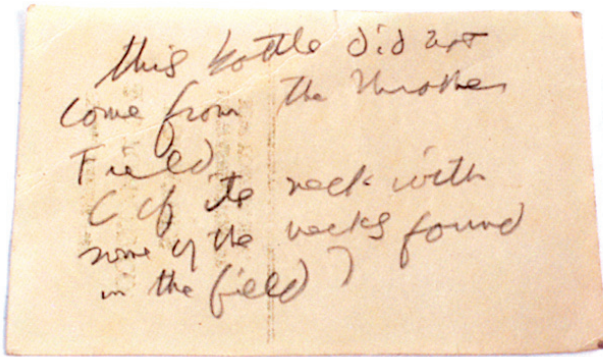 this bottle did not
come from the
Field
(cf its neck with
some of the necks found
in the field)